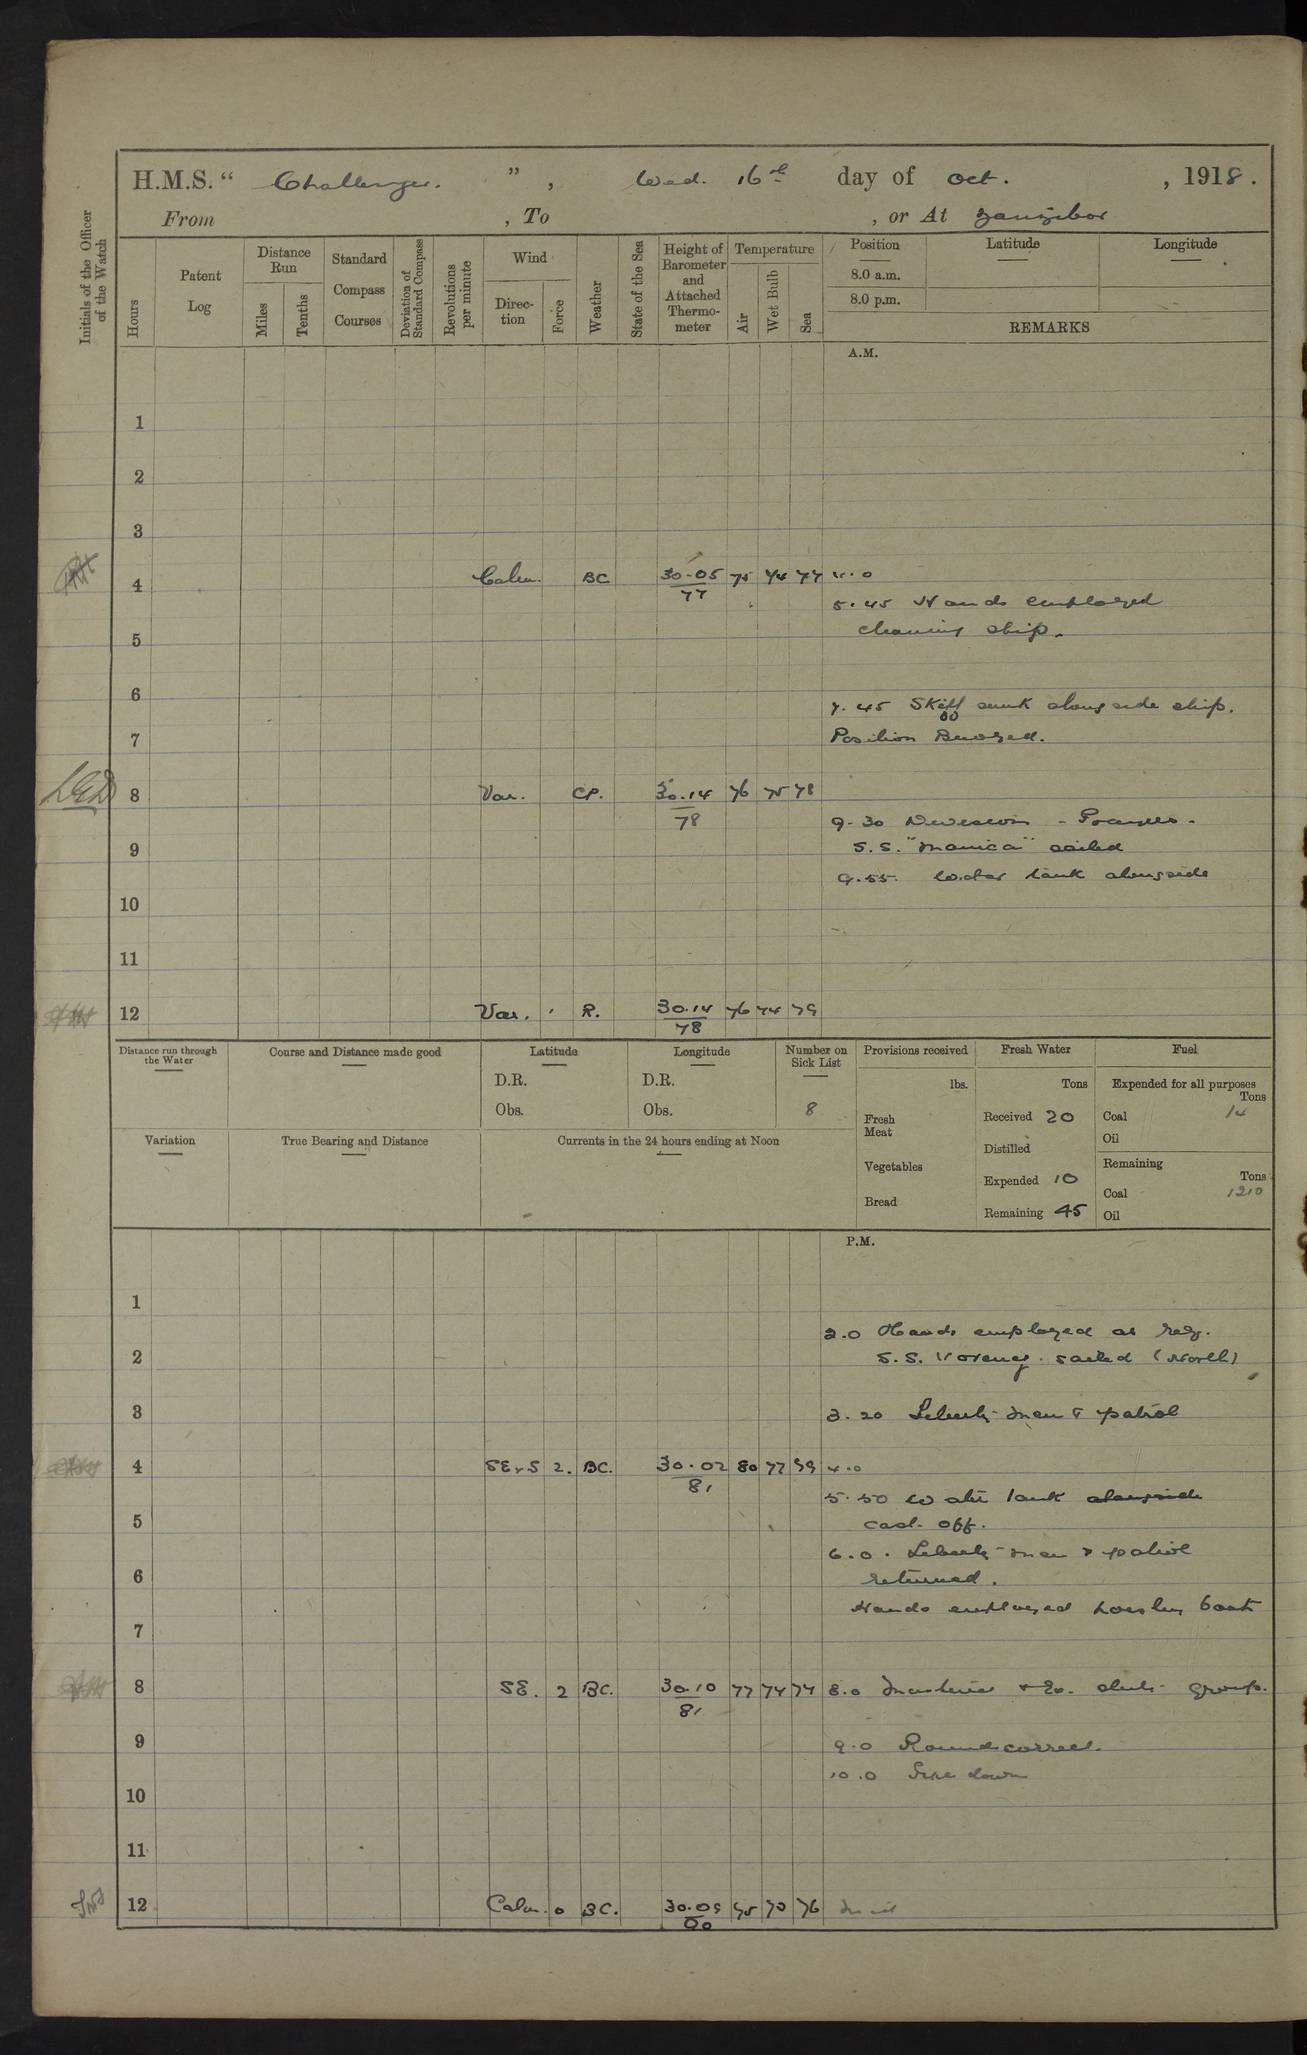 H.M.S. " Challenger. " , Wed. 16th day of Oct. , 1918.
From , To , or At Zanzibar
Initials of the Officer of the Watch
Hours
Patent Log
Distance Run
Miles
Tenths
Standard Compass Courses
Deviation of Standard Compass
Revolutions per minute
Wind
Direc-tion
Force
Weather
State of the Sea
Height of Barometer and Attached Thermo-meter
Temperature
Air
Wet Bulb
Sea
Position Latitude Longitude
8.0 a.m.
8.0 p.m.
REMARKS
A.M.
1
2
3
4 Calm. BC 30.05 75 74 77 4.0
77
5.45 Hands employed
cleaning ship.
5
6
7.45 Skiff sunk alongside ship.
Position Buoyed.
7
8 Var. CP. 30.14 76 75 78
78
9.30 Division - Prayers.
S.S. "Manica" sailed
9
9.55 Water tank alongside
10
11
12 Var. R. 30.14 76 74 79
78
Distance run through the Water
Course and Distance made good
Latitude
D.R.
Obs.
Longitude
D.R.
Obs.
Number on Sick List
8
Provisions received
lbs.
Fresh Meat
Vegetables
Bread
Fresh Water
Tons
Received 20
Distilled
Expended 10
Remaining 45
Fuel
Expended for all purposes
Tons
Coal 14
Oil
Remaining
Tons
Coal 1210
Oil
Variation
True Bearing and Distance
Currents in the 24 hours ending at Noon
P.M.
1
2.0 Hands employed as req.
2
S.S. sailed (North)
3
3.20 Liberty men & patrol
4 SExS 2. BC. 30.02 80 77 79 4.0
81
5.50 Water tank alongside
cast off.
5
6.0. Liberty men & patrol
returned.
6
Hands employed hoisting boats
7
8 SE. 2 BC. 30.10 77 74 74 8.0
81
9
9.0 Rounds correct.
10.0 Pipe down
10
11
12 Calm. 0 BC. 30.09 75 70 76
80